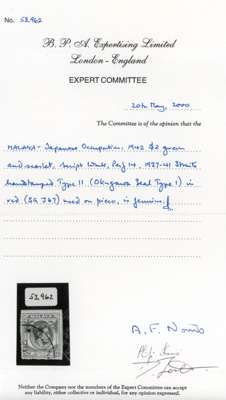 No. 53,962
B. P. A. Expertising Limited
London - England
EXPERT COMMITTEE
20th May, 2000
The Committee is of the opinion that the
MALAYA - Japanese Occupation, 1942 $2 green
and scarlet, Script Wmk, Perf 14, 1937-41 Straits
handstamped Type 11 (Okugawa Seal Type 1) in
red (SG J67) used on piece, is genuine.
53,962
Neither the Company nor the members of the Expert Committee can accept
any liability, either collective or individual, for any opinion expressed.